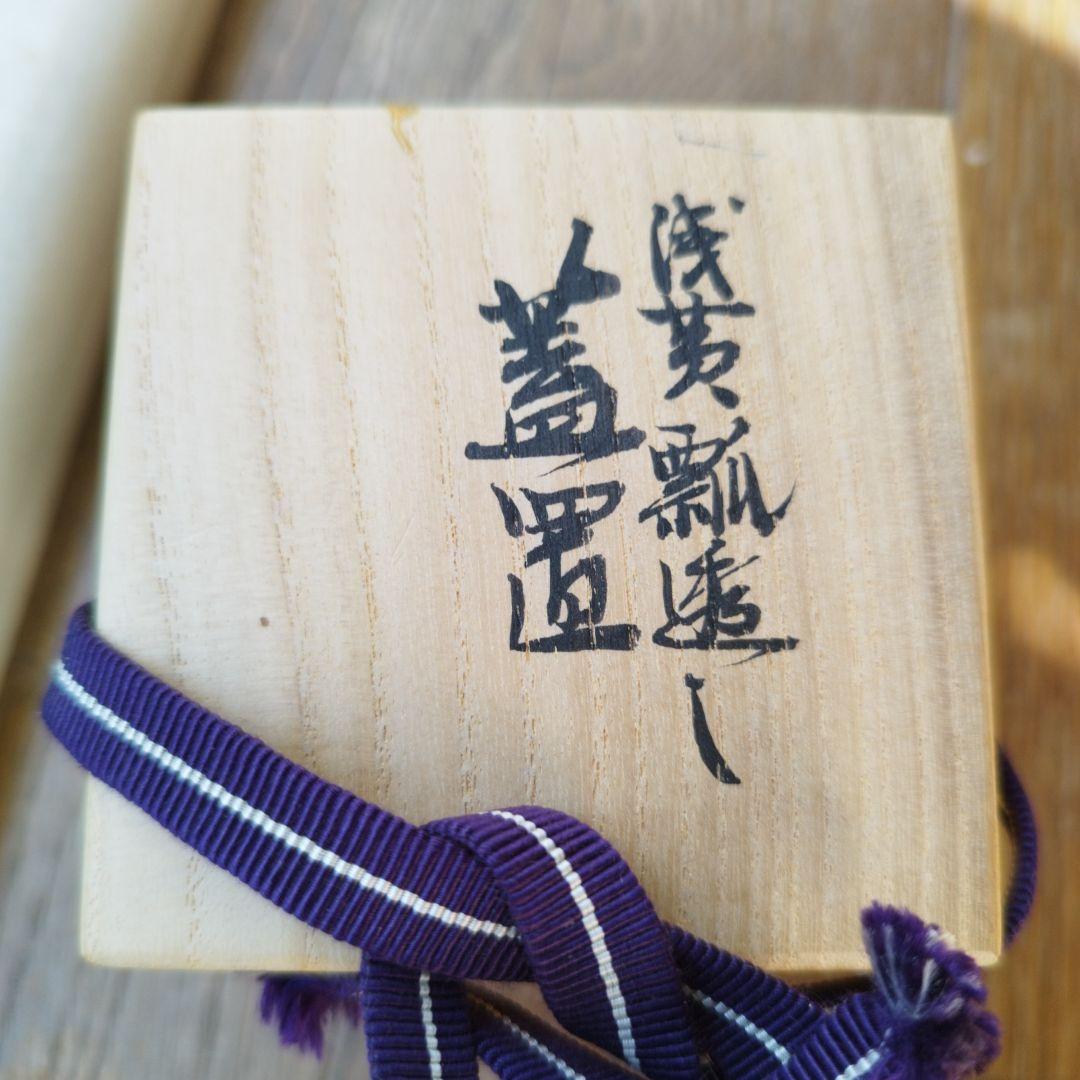 浅黄瓢透し
蓋置